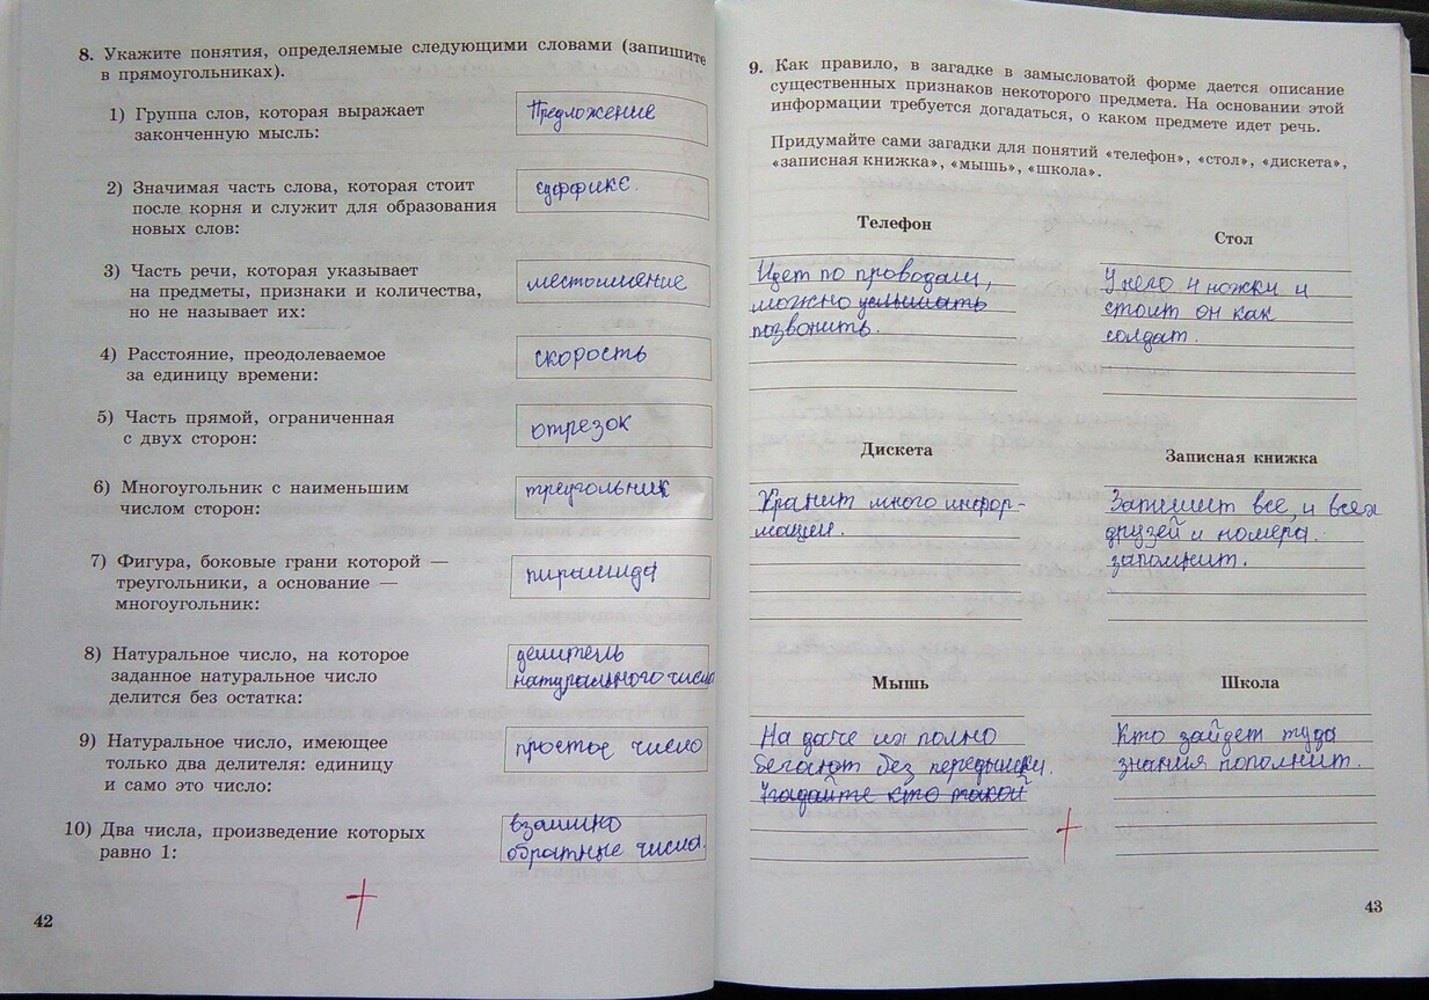 8. Укажите понятия, определяемые следующими словами (запишите
в прямоугольниках).
1) Группа слов, которая выражает
законченную мысль:
Предложение
2) Значимая часть слова, которая стоит
после корня и служит для образования
новых слов:
суффикс.
3) Часть речи, которая указывает
на предметы, признаки и количества,
но не называет их:
местоимение
4) Расстояние, преодолеваемое
за единицу времени:
скорость
5) Часть прямой, ограниченная
с двух сторон:
отрезок
6) Многоугольник с наименьшим
числом сторон:
треугольник
7) Фигура, боковые грани которой —
треугольники, а основание —
многоугольник:
пирамида
8) Натуральное число, на которое
заданное натуральное число
делится без остатка:
делитель
натурального числа
9) Натуральное число, имеющее
только два делителя: единицу
и само это число:
простое число
10) Два числа, произведение которых
равно 1:
взаимно
обратные числа.
+
42
9. Как правило, в загадке в замысловатой форме дается описание
существенных признаков некоторого предмета. На основании этой
информации требуется догадаться, о каком предмете идет речь.
Придумайте сами загадки для понятий «телефон», «стол», «дискета»,
«записная книжка», «мышь», «школа».
Телефон
Идет по проводам,
можно услышать
позвонить.
Стол
У него 4 ножки и
стоит он как
солдат.
Дискета
Хранит много инфор-
мации.
Записная книжка
Запишет все, и всех
друзей и номера
запомнит.
Мышь
На даче их полно
бегают без передышки.
Угадайте кто такой
Школа
Кто зайдет туда
знания пополнит.
+
43